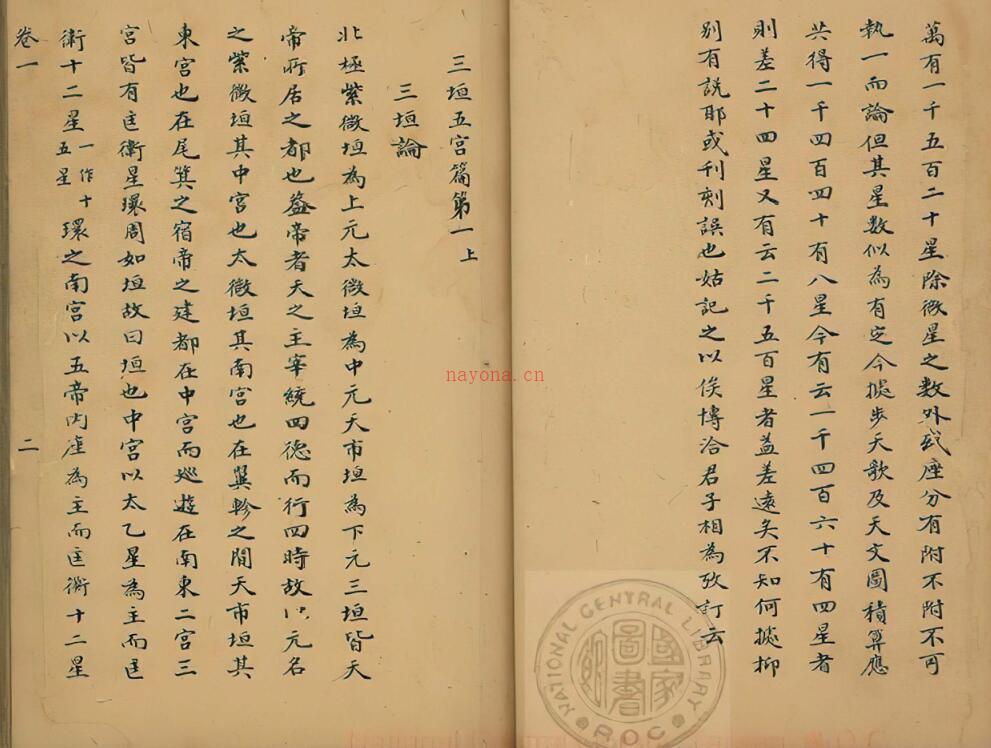 萬有一千五百二十星除微星之數外或座分有附不附不可
執一而論但其星數似為有定今據步天歌及天文圖積算應
共得一千四百四十有八星今有云一千四百六十有四星者
則差二十四星又有云二千五百星者蓋差遠矣不知何據抑
別有說耶或刊刻誤也姑記之以俟博洽君子相為攷訂云
三垣五宮篇第一上
三垣論
北極紫微垣為上元太微垣為中元天市垣為下元三垣皆天
帝所居之都也蓋帝者天之主宰統四德而行四時故以元名
之紫微垣其中宮也太微垣其南宮也在翼軫之間天市垣其
東宮也在尾箕之宿帝之建都在中宮而廵遊在南東二宮三
宮皆有匡衛星環周如垣故曰垣也中宮以太乙星為主而匡
衛十二星一作十五星環之南宮以五帝內座為主而匡衛十二星
卷一
二
nayona.cn
NATIONAL CENTRAL LIBRARY
ROC
國家圖書館